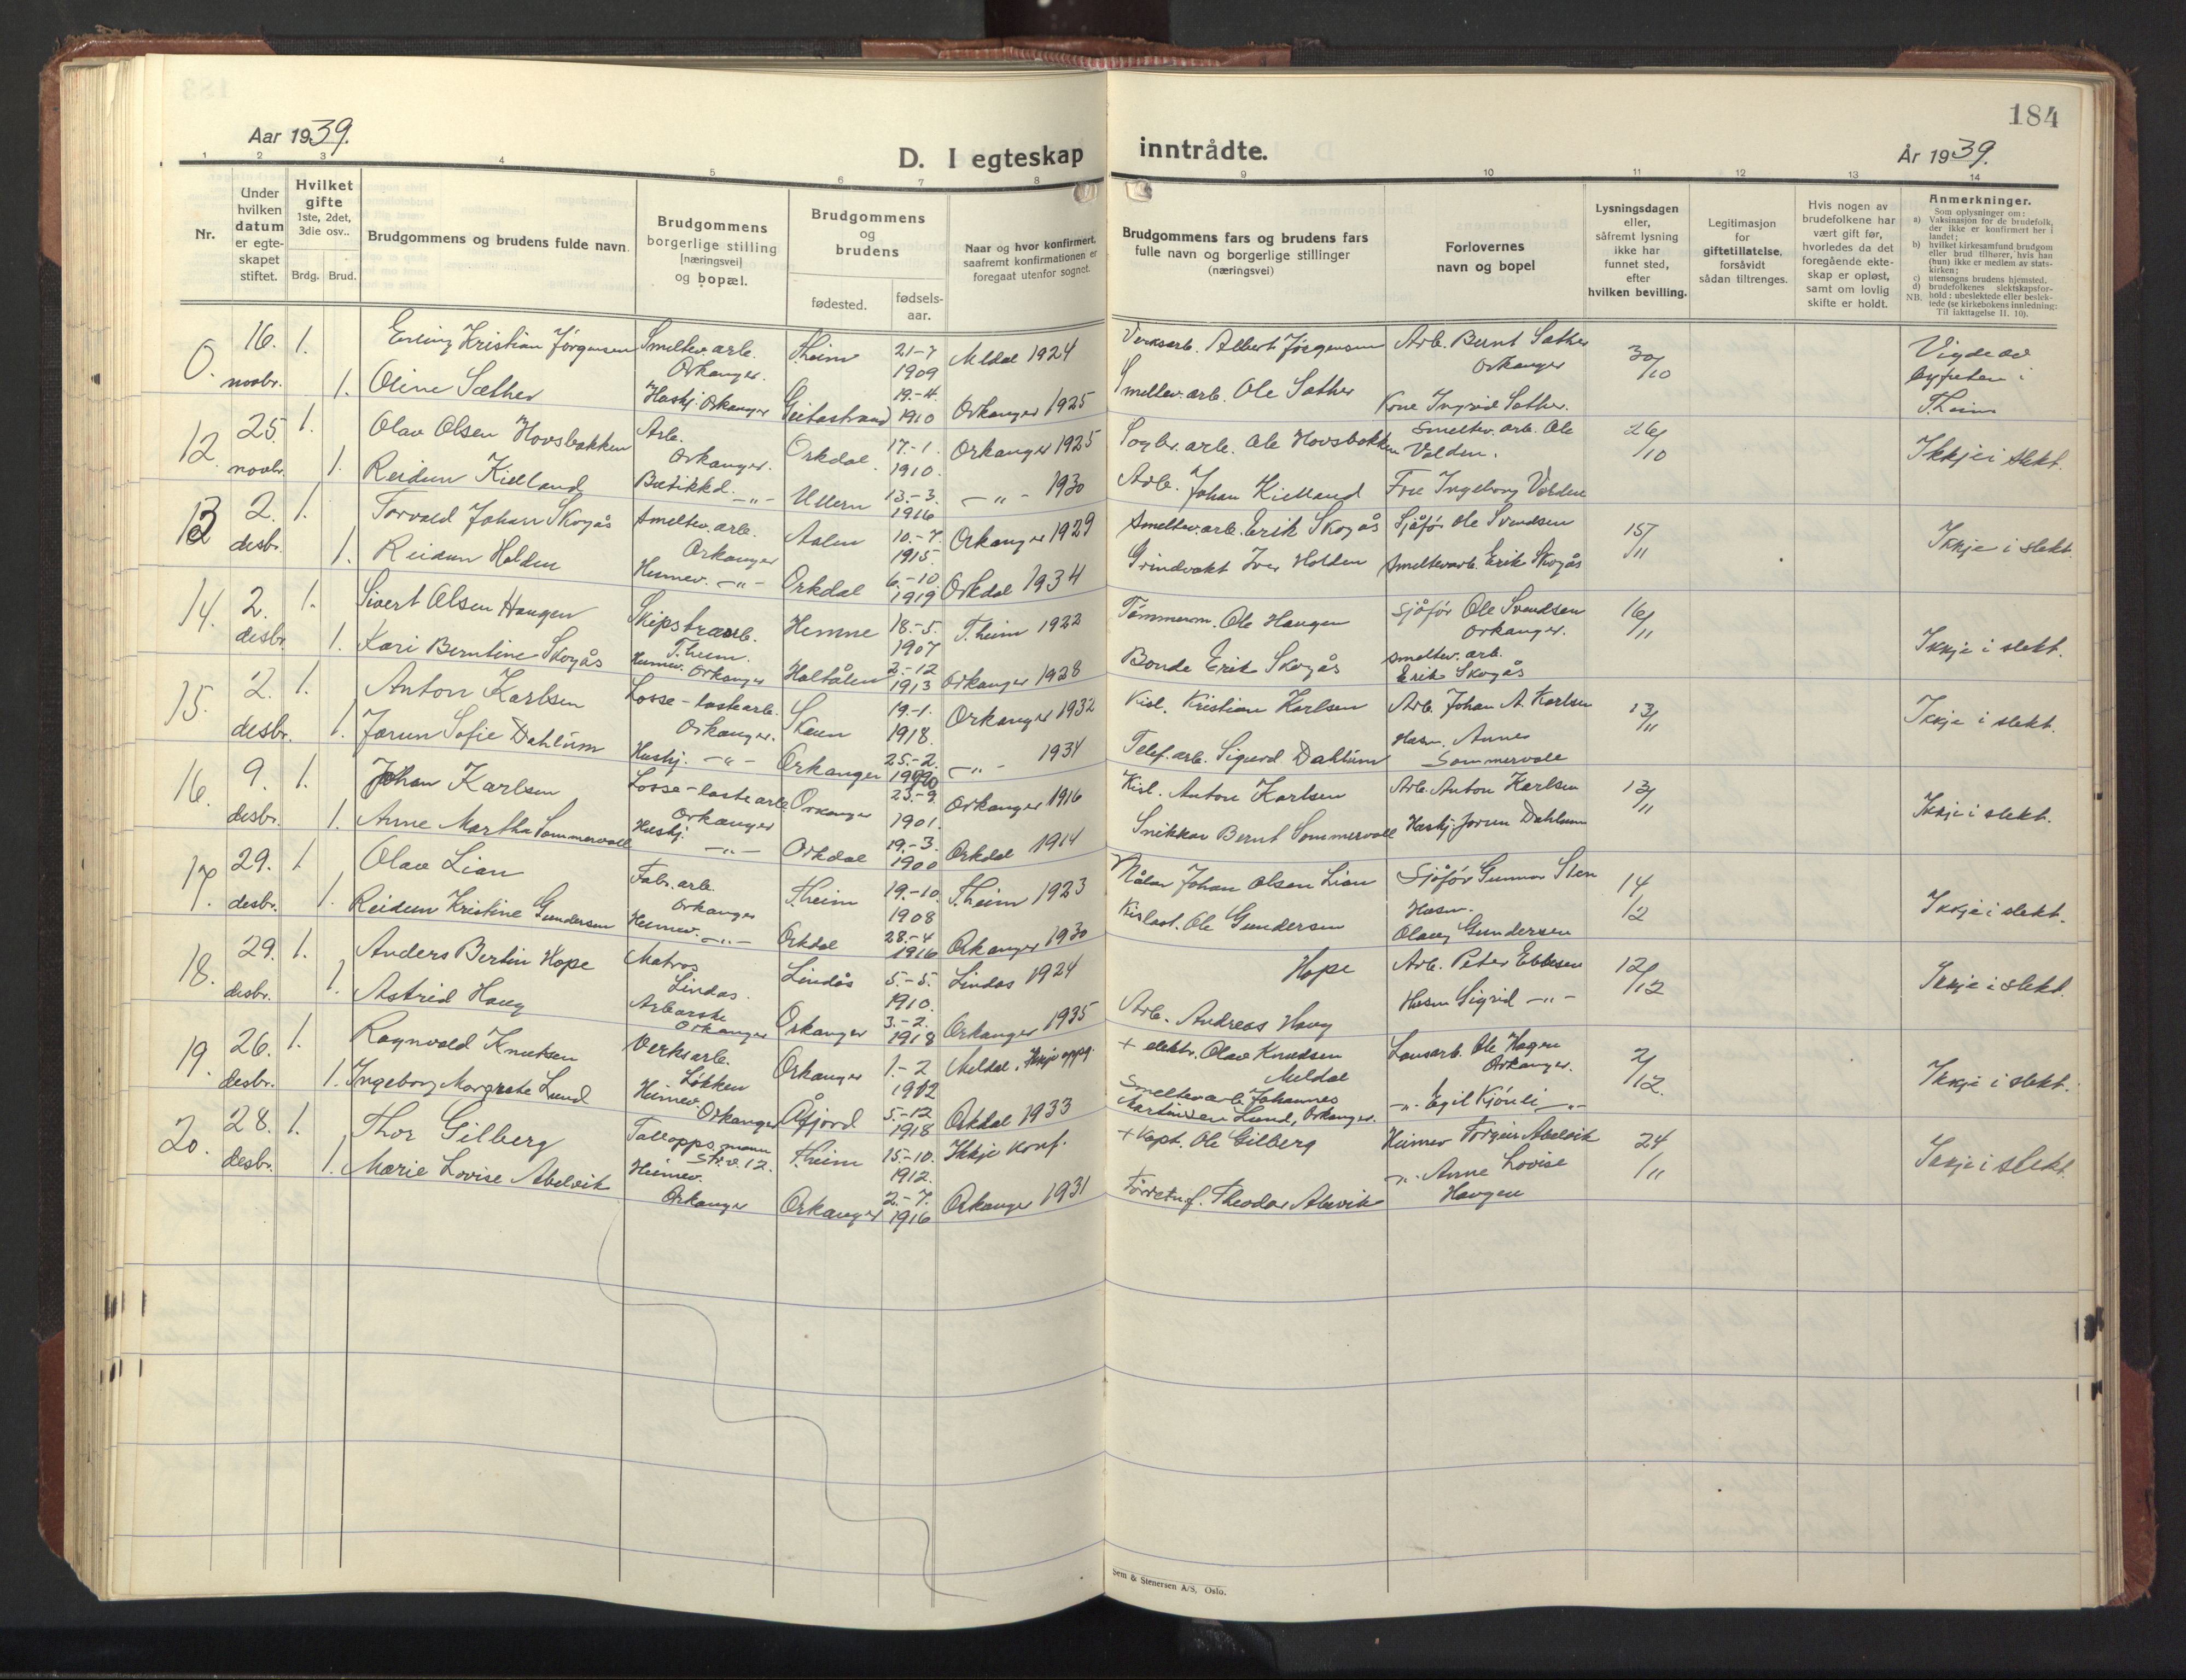 184
Aar 1939.
D. I egteskap inntrådte.
År 1939.
1 2 3 4 5 6 7 8 9 10 11 12 13 14
Nr.
Under hvilken datum er egte-skapet stiftet.
Hvilket gifte 1ste, 2det, 3die osv..
Brdg. Brud.
Brudgommens og brudens fulde navn.
Brudgommens borgerlige stilling (næringsvei) og bopæl.
Brudgommens og brudens
fødested.
fødsels-aar.
Naar og hvor konfirmert, saafremt konfirmationen er foregaat utenfor sognet.
Brudgommens fars og brudens fars fulle navn og borgerlige stillinger (næringsvei)
Forlovernes navn og bopel
Lysningsdagen eller, såfremt lysning ikke har funnet sted, efter hvilken bevilling.
Legitimasjon for giftetillatelse, forsåvidt sådan tiltrenges.
Hvis nogen av brudefolkene har vært gift før, hvorledes da det foregående ekte-skap er opløst, samt om lovlig skifte er holdt.
Anmerkninger.
Som oplysninger om:
a) Vaksinasjon for de brudefolk, der ikke er konfirmert her i landet;
b) hvilket kirkesamfund brudgom eller brud tilhører, hvis han (hun) ikke er medlem av stats-kirken;
c) utensogns brudens hjemsted.
d) brudefolkenes slektskapsfor-hold: ubeslektede eller beslek-tede (se kirkebokens innledning:
NB. Til iakttagelse II. 10).
0. 16. novbr. 1. Erling Kristian Jørgensen Smeltev. arb. Orkanger. T.heim 21-7 1909 Meldal 1924 Verksarb. Albert Jørgensen Arb. Bernt Sæther Orkanger 30/10 Vigde av byfuten i T.heim
1. Oline Sæther Hushj. Orkanger Geitastrand 19.-4. 1910 Orkanger 1925 Smeltev. arb. Ole Sæther Kone Ingrid Sæther.
12. 25. novbr. 1. Olav Olsen Hovsbakken Arb. Orkanger. Orkdal. 17.-1. 1910. Orkanger 1925 Sagbr. arb. Ole Hovsbakken Smeltev. arb. Ole Volden. 26/10 Ikkje i slekt.
1. Reidun Kielland Butikkd. -"- Ullern 13.-3. 1916 -"- 1930 Arb. Johan Kielland Fru Ingeborg Volden
13 2. desbr. 1. Torvald Johan Skogås Smeltev. arb. Orkanger Aalen 10.-7. 1915. Orkanger 1929 Smeltev. arb. Erik Skogås Sjåfør Ole Svendsen 15/11 Ikkje i slekt.
1. Reidun Holden Heimev. -"- Orkdal 6.-10. 1919 Orkdal 1934 Grindvakt Iver Holden Smeltevarb. Erik Skogås
14. 2. desbr. 1. Sivert Olsen Haugen Skipstrarb. T.heim. Hemne 18.-5. 1907 T.heim 1922 Tømmerm. Ole Haugen Sjåfør Ole Svendsen Orkanger. 16/11 Ikkje i slekt.
1. Kari Berntine Skogås Heimev. Orkanger Haltålen 2.-12 1913 Orkanger 1928 Bonde Erik Skogås Smeltev. arb. Erik Skogås
15. 2. desbr. 1. Anton Karlsen Losse-lastearb. Orkanger. Skaun 19.-1. 1918. Orkanger 1932 Kisl. Kristian Karlsen Arb. Johan A. Karlsen 13/11 Ikkje i slekt.
1. Jorun Sofie Dahlum Hushj. -"- Orkanger 25.-2. -"- 1934 Telef. arb. Sigurd Dahlum Husm. Anne Sommervoll
16. 9. desbr. 1. Johan Karlsen Losse-lastearb. Orkanger Orkanger 23.-9. 1901. Orkanger 1916 Kisl. Anton Karlsen Arb. Anton Karlsen 13/11 Ikkje i slekt.
1. Anne Martha Sommervoll Hushj. -"- Orkdal 19.-3. 1900 Orkdal 1914 Snikkar Bernt Sommervoll Hushj. Jorun Dahlum
17. 29. desbr. 1 Olav Lian Fabr. arb. Orkanger T.heim 19.-10. 1908 T.heim 1923 Målar Johan Olsen Lian Sjåfør Gunnar Sten 14/12 Ikkje i slekt.
1. Reidun Kristine Gundersen Heimev. -"- Orkdal 28.-4 1916 Orkanger 1930 Kislast. Ole Gundersen Husm. Olaug Gundersen
18. 29. desbr. 1. Anders Bertin Hope Matros Lindås. Lindås 5.-5. 1910. Lindås 1924 Hope Arb. Peter Ebbesen 12/12 Ikkje i slekt.
1. Astrid Haug Arbarske Orkanger Orkanger 3.-2. 1918 Orkanger 1935 Arb. Andreas Haug Husm Sigrid -"-
19. 26. desbr. 1. Ragnvald Knutsen Verksarb. Løkken Orkanger 1.-2 1912 Meldal. Ikkje oppg. + elektr. Olav Knudsen Meldal Lausarb. Ole Hagen Orkanger. 2/12. Ikkje i slekt.
1. Ingeborg Margrete Lund Heimev. Orkanger Åfjord 5.-12 1918 Orkdal 1933 Smeltevarb. Johannes Martinsen Lund, Orkanger. -"- Egil Kjønli -"-
20. 28. desbr. 1. Thor Gilberg Tolloppsmann T.heim 15.-10. 1912. Ikkje konf. + Kapt. Ole Gilberg Heimev Torgeir Abelvik 24/11 Ikkje i slekt.
1. Marie Lovise Abelvik Heimev. Orkanger Orkanger 2.-7. 1916 Orkanger 1931 Forretn.f. Theodor Abelvik -"- Anne Lovise Haugen
Sem & Stenersen A/S, Oslo.